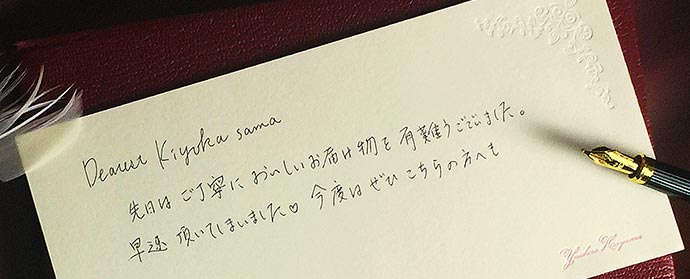 Dearest Kiyoka sama
先日はご丁寧においしいお届け物を有難うございました。
早速頂いてしまいました♡ 今度はぜひこちらの方へも